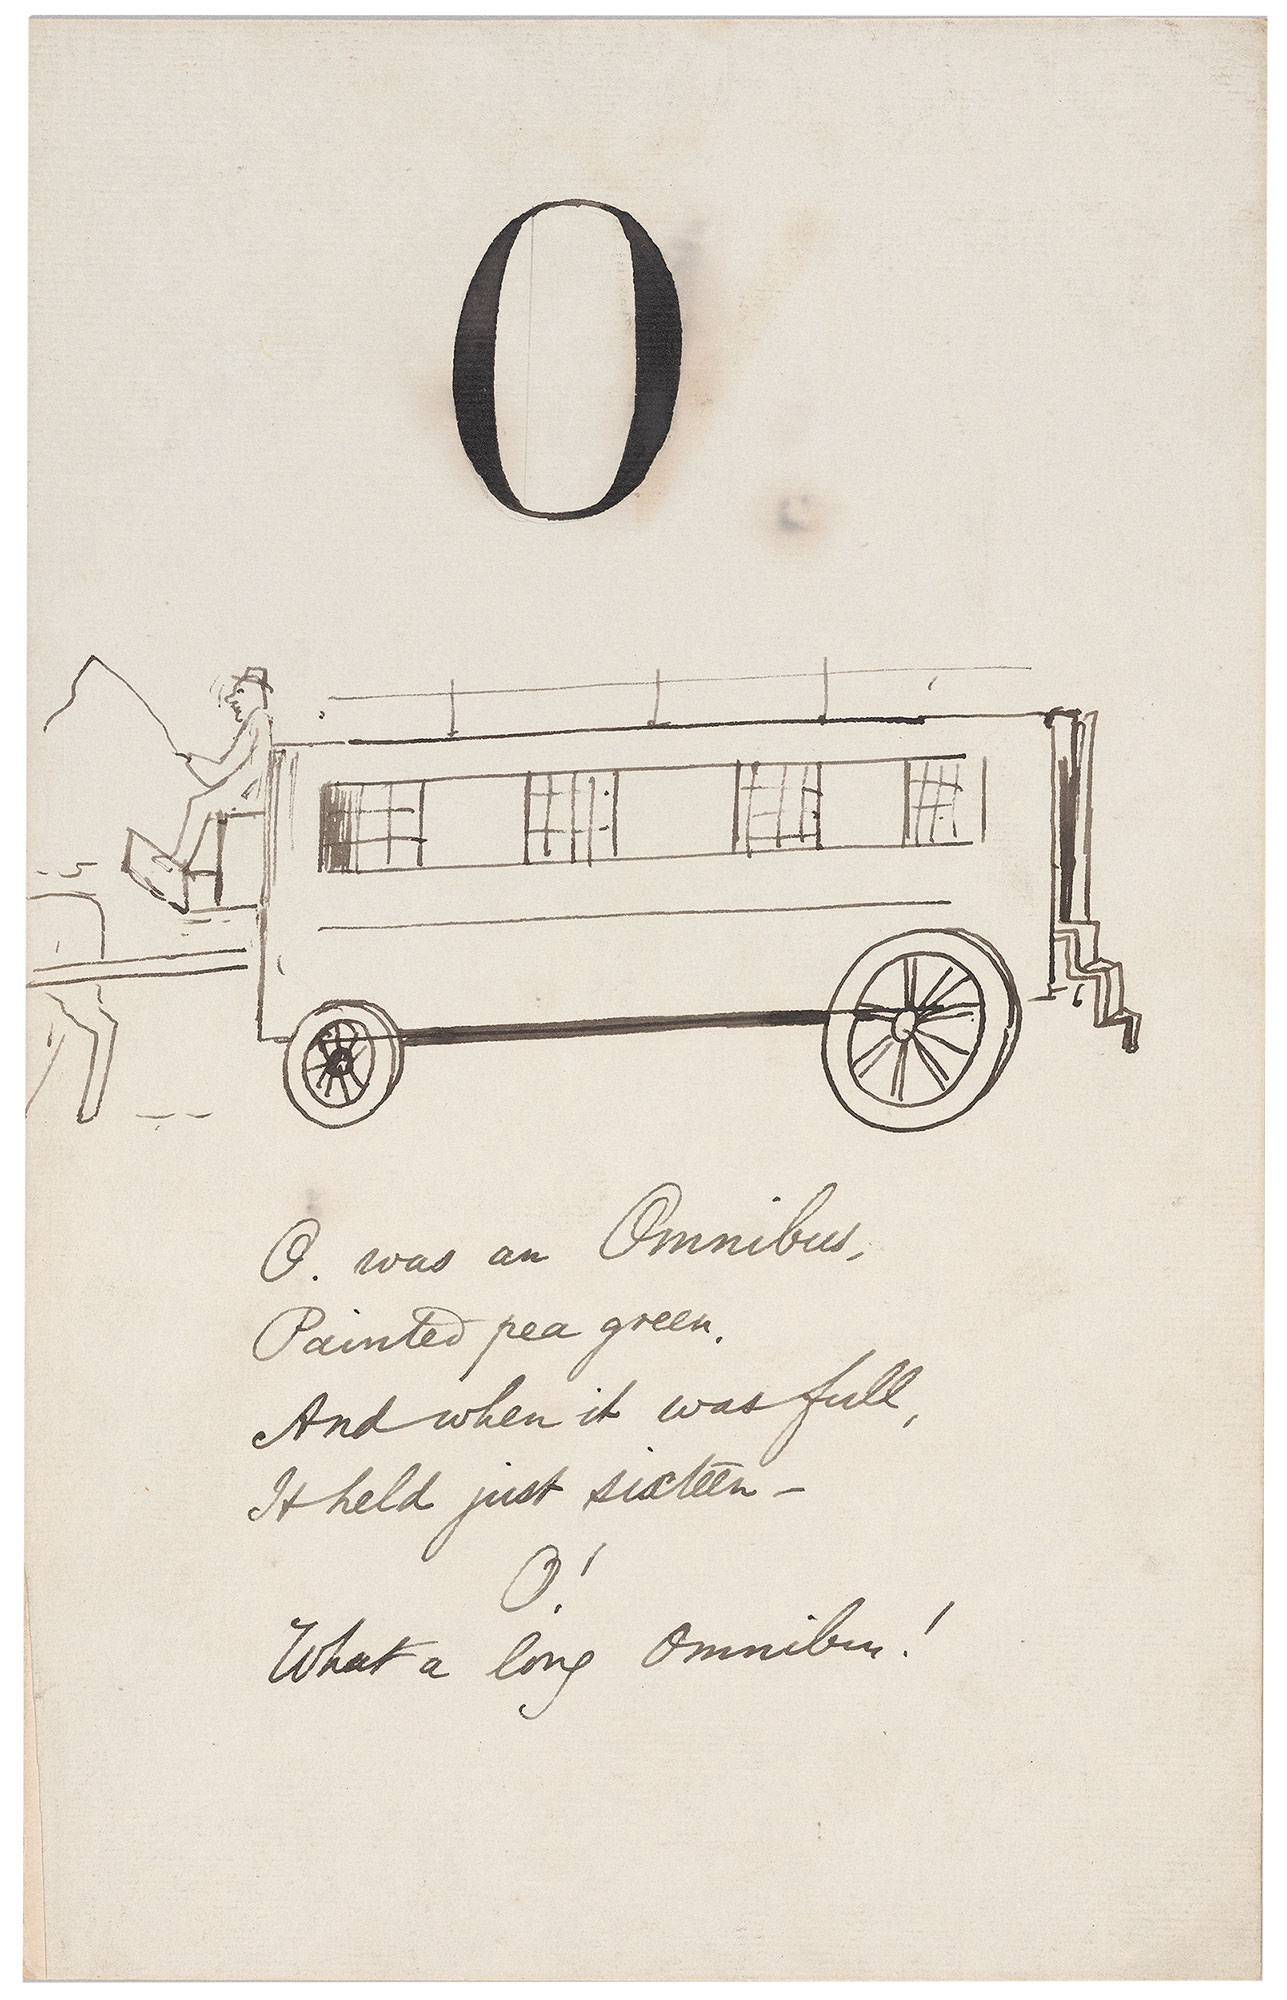 O
O. was an Omnibus,
Painted pea green.
And when it was full,
It held just sixteen –
O!
What a long Omnibus!